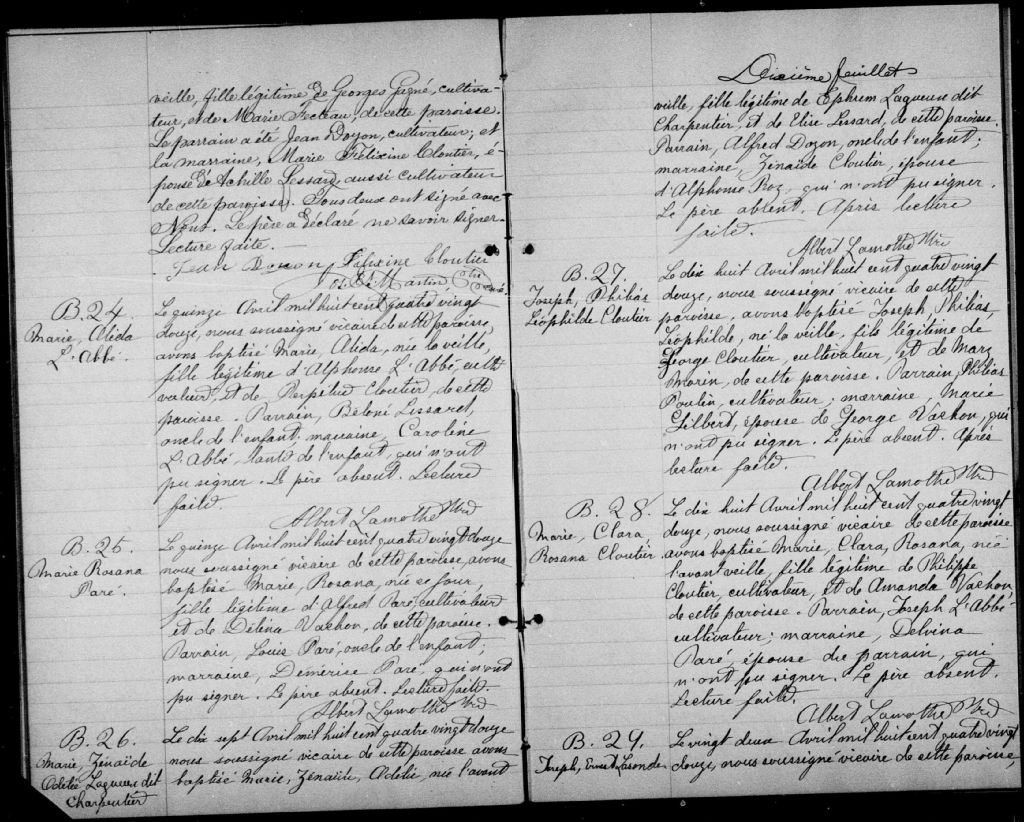 veille, fille légitime de Georges Gagné, cultiva-
teur, et de Marie Fecteau, de cette paroisse.
Le parrain a été Jean Doyon, cultivateur; et
la marraine, Marie Félixine Cloutier, é-
pouse de Achille Lessard, aussi cultivateur
de cette paroisse. Tous deux ont signé avec
Nous. Le père a déclaré ne savoir signer.
Lecture faite.
Jean Doyon Félixine Cloutier
Martin Ptre Curé.
B. 24
Marie, Alida
L'Abbé.
Le quinze Avril mil huit cent quatre vingt
douze, nous soussigné vicaire de cette paroisse,
avons baptisé Marie, Alida, née la veille,
fille légitime d'Alphonse L'Abbé, culti
vateur, et de Perpétue Cloutier, de cette
paroisse. Parrain, Béloni Lessard,
oncle de l'enfant; marraine, Caroline
L'Abbé, tante de l'enfant, qui n'ont
pu signer. Le père absent. Lecture
faite.
Albert Lamothe Ptre
B. 25.
Marie Rosana
Paré.
Le quinze Avril mil huit cent quatre vingt douze
nous soussigné vicaire de cette paroisse, avons
baptisé Marie, Rosana, née ce jour,
fille légitime d'Alfred Paré, cultivateur
et de Délina Vachon, de cette paroisse.
Parrain, Louis Paré, oncle de l'enfant;
marraine, Démérise Paré, qui n'ont
pu signer. Le père absent. Lecture faite.
Albert Lamothe Ptre
B. 26.
Marie, Zénaïde
Adélié Lagueux dit
Charpentier
Le dix sept Avril mil huit cent quatre vingt douze
nous soussigné vicaire de cette paroisse avons
baptisé Marie, Zénaïde, Adélié, née l'avant
Dixième feuillet
veille, fille légitime de Ephrem Lagueux dit
Charpentier, et de Elise Lessard, de cette paroisse.
Parrain, Alfred Doyon, oncle de l'enfant;
marraine, Zénaïde Cloutier, épouse
d'Alphonse Roy, qui n'ont pu signer.
Le père absent. Après lecture
faite.
Albert Lamothe Ptre
B. 27.
Joseph, Philias
Léophilde Cloutier
Le dix huit Avril mil huit cent quatre vingt
douze, nous soussigné vicaire de cette
paroisse, avons baptisé Joseph, Philias,
Léophilde, né la veille, fils légitime de
George Cloutier, cultivateur, et de Mary
Morin, de cette paroisse. Parrain, Philias
Poulin, cultivateur; marraine, Marie
Gilbert, épouse de George Vachon, qui
n'ont pu signer. Le père absent. Après
lecture faite.
Albert Lamothe Ptre
B. 28.
Marie, Clara,
Rosana Cloutier
Le dix huit Avril mil huit cent quatre vingt
douze, nous soussigné vicaire de cette paroisse
avons baptisé Marie, Clara, Rosana, née
l'avant veille, fille légitime de Philippe
Cloutier, cultivateur, et de Amanda Vachon,
de cette paroisse. Parrain, Joseph L'Abbé
cultivateur; marraine, Delvina
Paré, épouse du parrain, qui
n'ont pu signer. Le père absent.
Lecture faite.
Albert Lamothe Ptre
B. 29.
Joseph, Ernest
Le vingt deux Avril mil huit cent quatre vingt
douze, nous soussigné vicaire de cette paroisse,